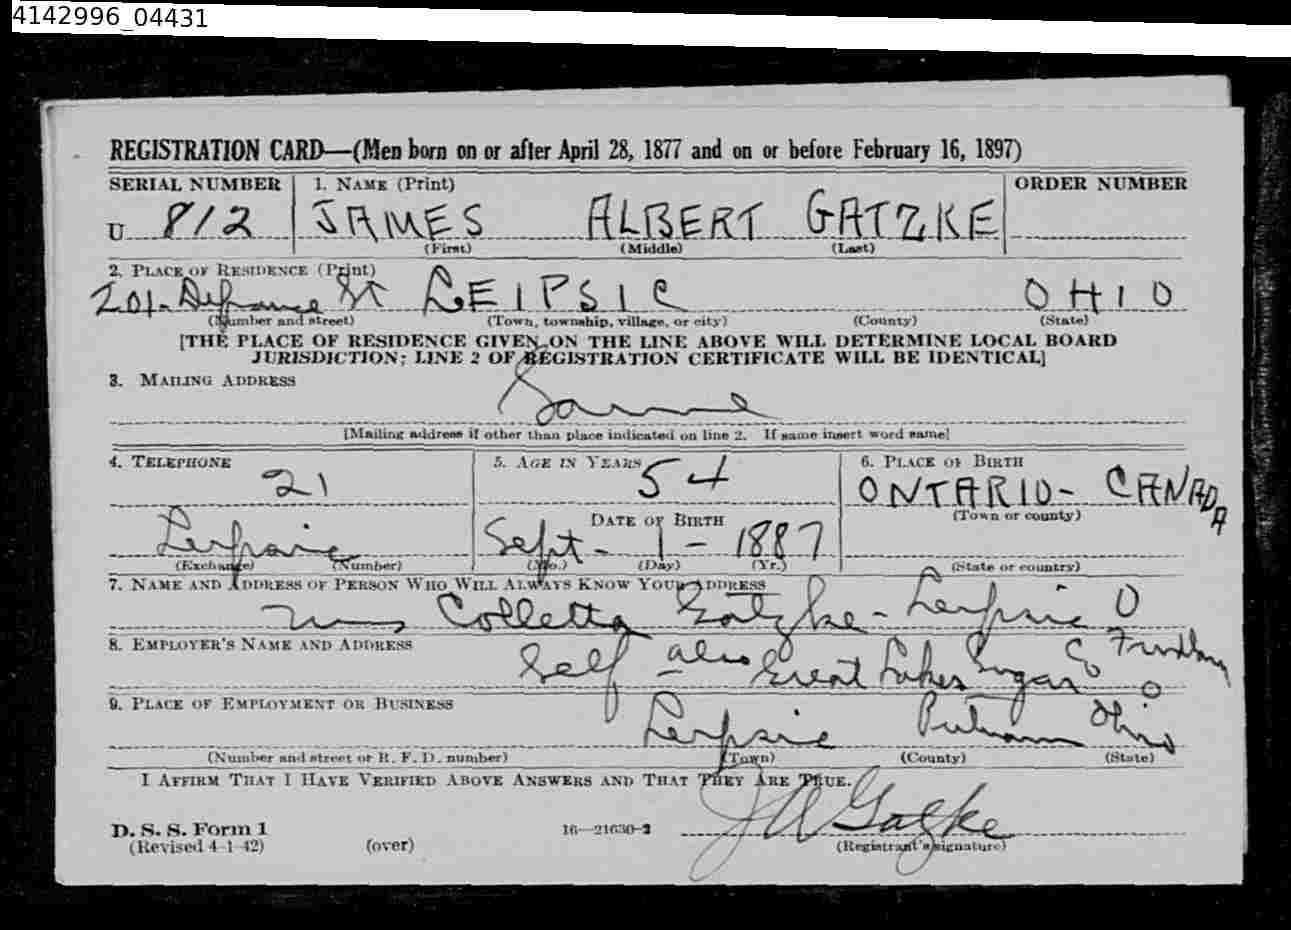 4142996_04431
REGISTRATION CARD—(Men born on or after April 28, 1877 and on or before February 16, 1897)
SERIAL NUMBER 1. NAME (Print) ORDER NUMBER
U 812 JAMES ALBERT GATZKE
(First) (Middle) (Last)
2. PLACE OF RESIDENCE (Print)
201- Defiance St LEIPSIC OHIO
(Number and street) (Town, township, village, or city) (County) (State)
[THE PLACE OF RESIDENCE GIVEN ON THE LINE ABOVE WILL DETERMINE LOCAL BOARD
JURISDICTION; LINE 2 OF REGISTRATION CERTIFICATE WILL BE IDENTICAL]
3. MAILING ADDRESS
Same
[Mailing address if other than place indicated on line 2. If same insert word same]
4. TELEPHONE 5. AGE IN YEARS 6. PLACE OF BIRTH
21 54 ONTARIO- CANADA
(Town or county)
DATE OF BIRTH
Leipsic Sept- 1- 1887
(Exchange) (Number) (Mo.) (Day) (Yr.) (State or country)
7. NAME AND ADDRESS OF PERSON WHO WILL ALWAYS KNOW YOUR ADDRESS
Mrs Colletta Gatzke- Leipsic O
8. EMPLOYER'S NAME AND ADDRESS
Self - also Great Lakes Sugar Co Findlay O
9. PLACE OF EMPLOYMENT OR BUSINESS
Leipsic Putnam Ohio
(Number and street or R. F. D. number) (Town) (County) (State)
I AFFIRM THAT I HAVE VERIFIED ABOVE ANSWERS AND THAT THEY ARE TRUE.
J A Gatzke
D. S. S. Form 1 16—21630-2
(Revised 4-1-42) (over) (Registrant's signature)